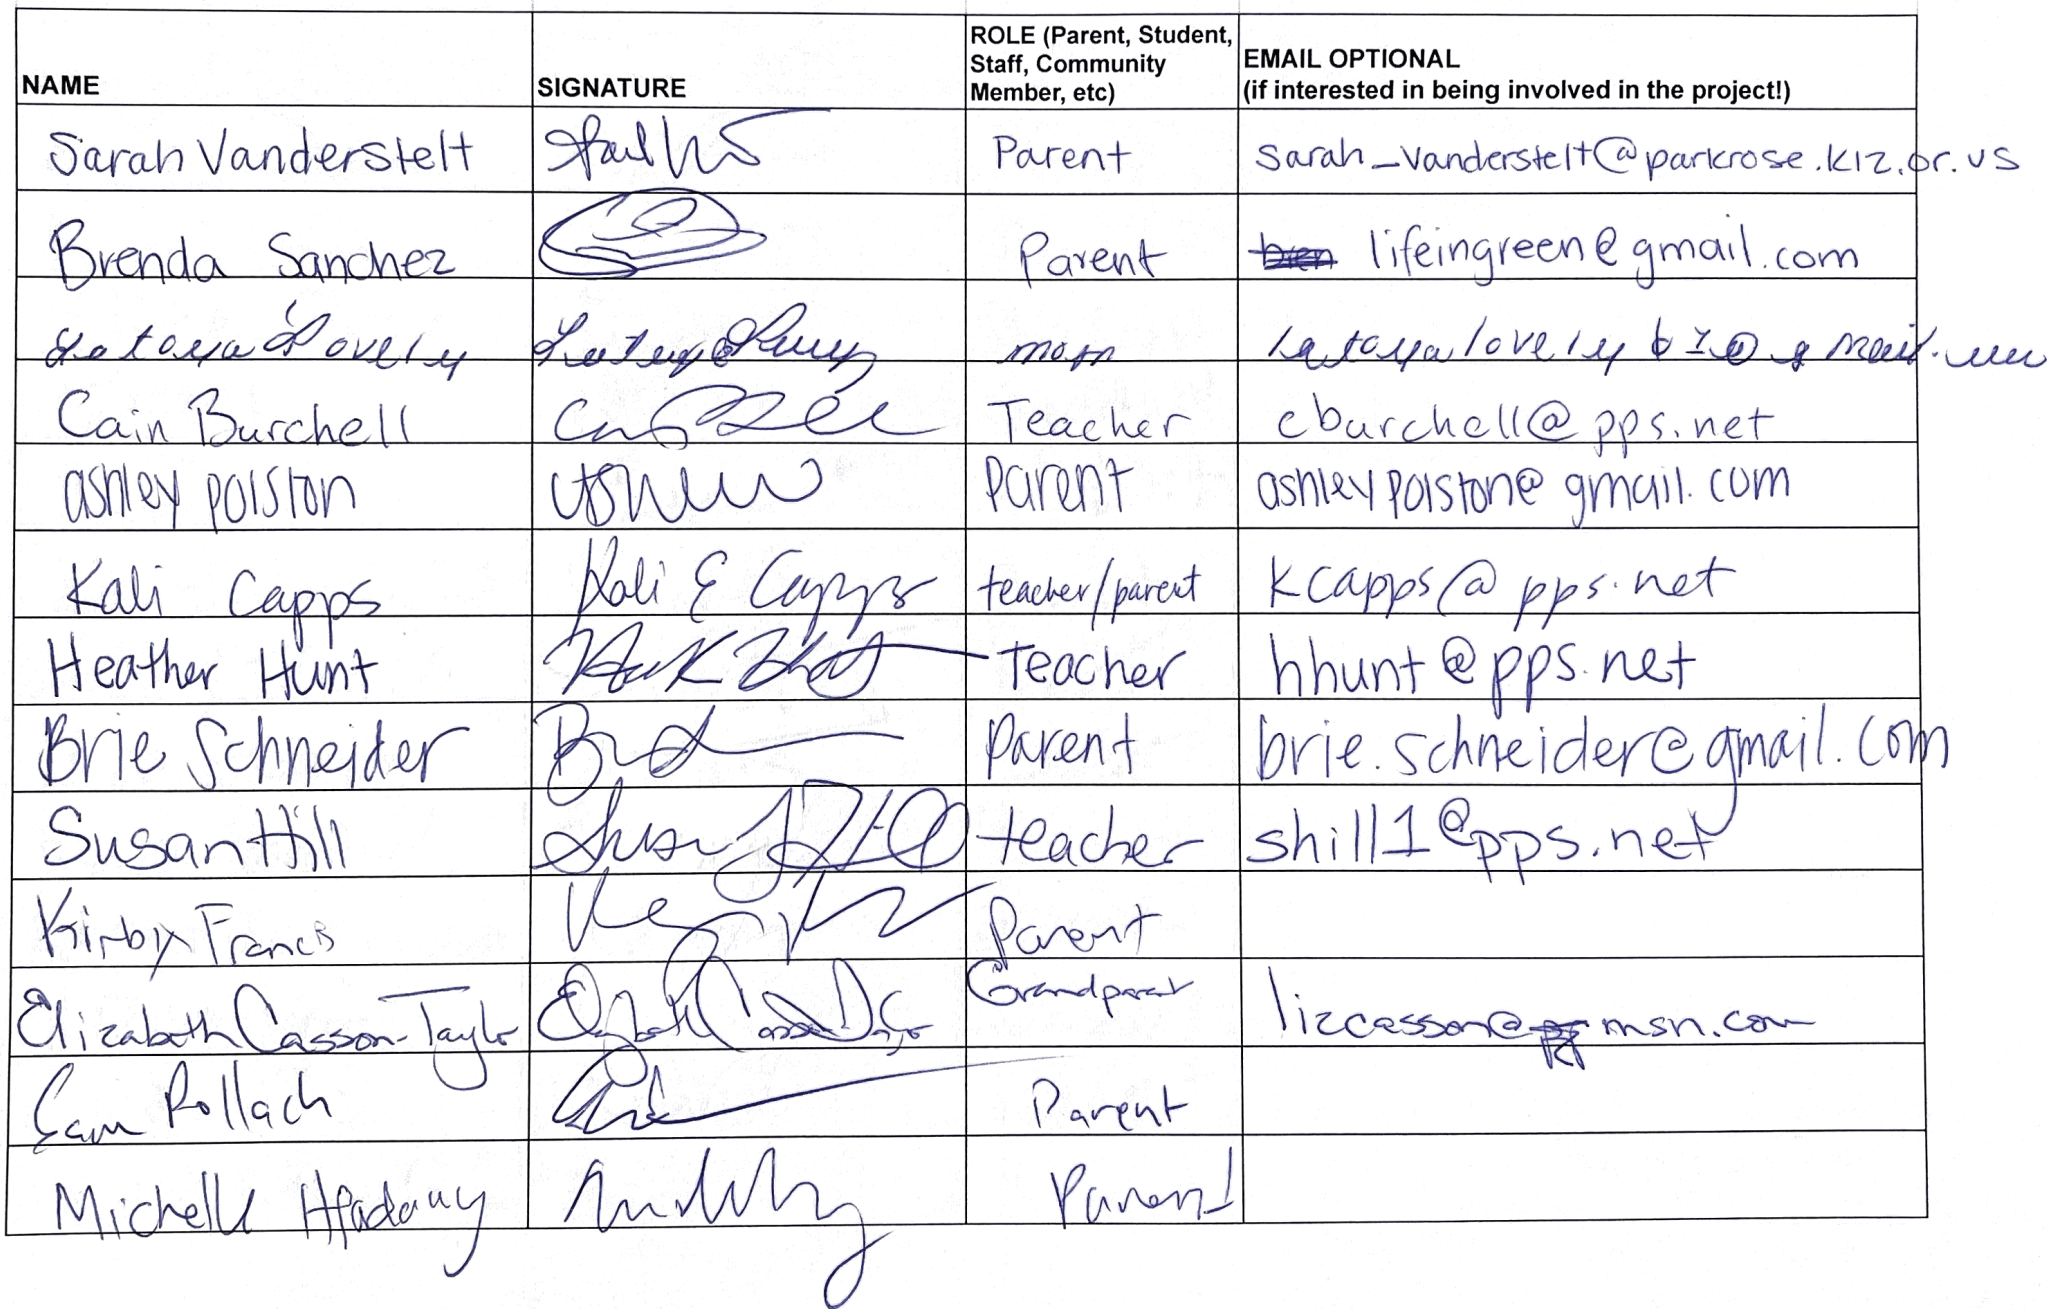 NAME
SIGNATURE
ROLE (Parent, Student,
Staff, Community
Member, etc)
EMAIL OPTIONAL
(if interested in being involved in the project!)
Sarah Vanderstelt Parent sarah_vanderstelt@parkrose.k12.or.us
Brenda Sanchez Parent lifeingreen@gmail.com
Latoya Lovely Latoya Lovely mom
Cain Burchell Teacher cburchell@pps.net
ashley polston parent ashleypolston@gmail.com
Kali Capps Kali E Capps teacher/parent kcapps@pps.net
Heather Hunt Teacher hhunt@pps.net
Brie Schneider Parent brie.schneider@gmail.com
Susan Hill Susan Hill teacher shill1@pps.net
Kirby Francis Parent
Elizabeth Casson-Taylor Elizabeth Casson Taylor Grandparent lizcasson@msn.com
Sam Pollach Parent
Michelle Parent